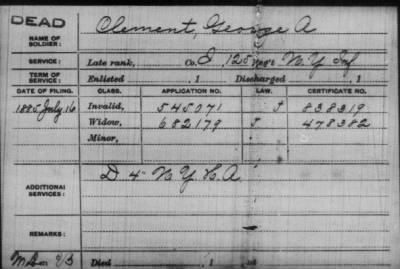 DEAD
Clement, George A
NAME OF SOLDIER:
SERVICE: Late rank, Co. I, 125 Reg't N.Y. Inf
TERM OF SERVICE: Enlisted , 1 Discharged , 1
DATE OF FILING. CLASS. APPLICATION NO. LAW. CERTIFICATE NO.
1885 July 16 Invalid, 545071 838319
Widow, 682179 478382
Minor,
D 4" N.Y. H.A.
ADDITIONAL SERVICES:
REMARKS:
Died , 1 , at